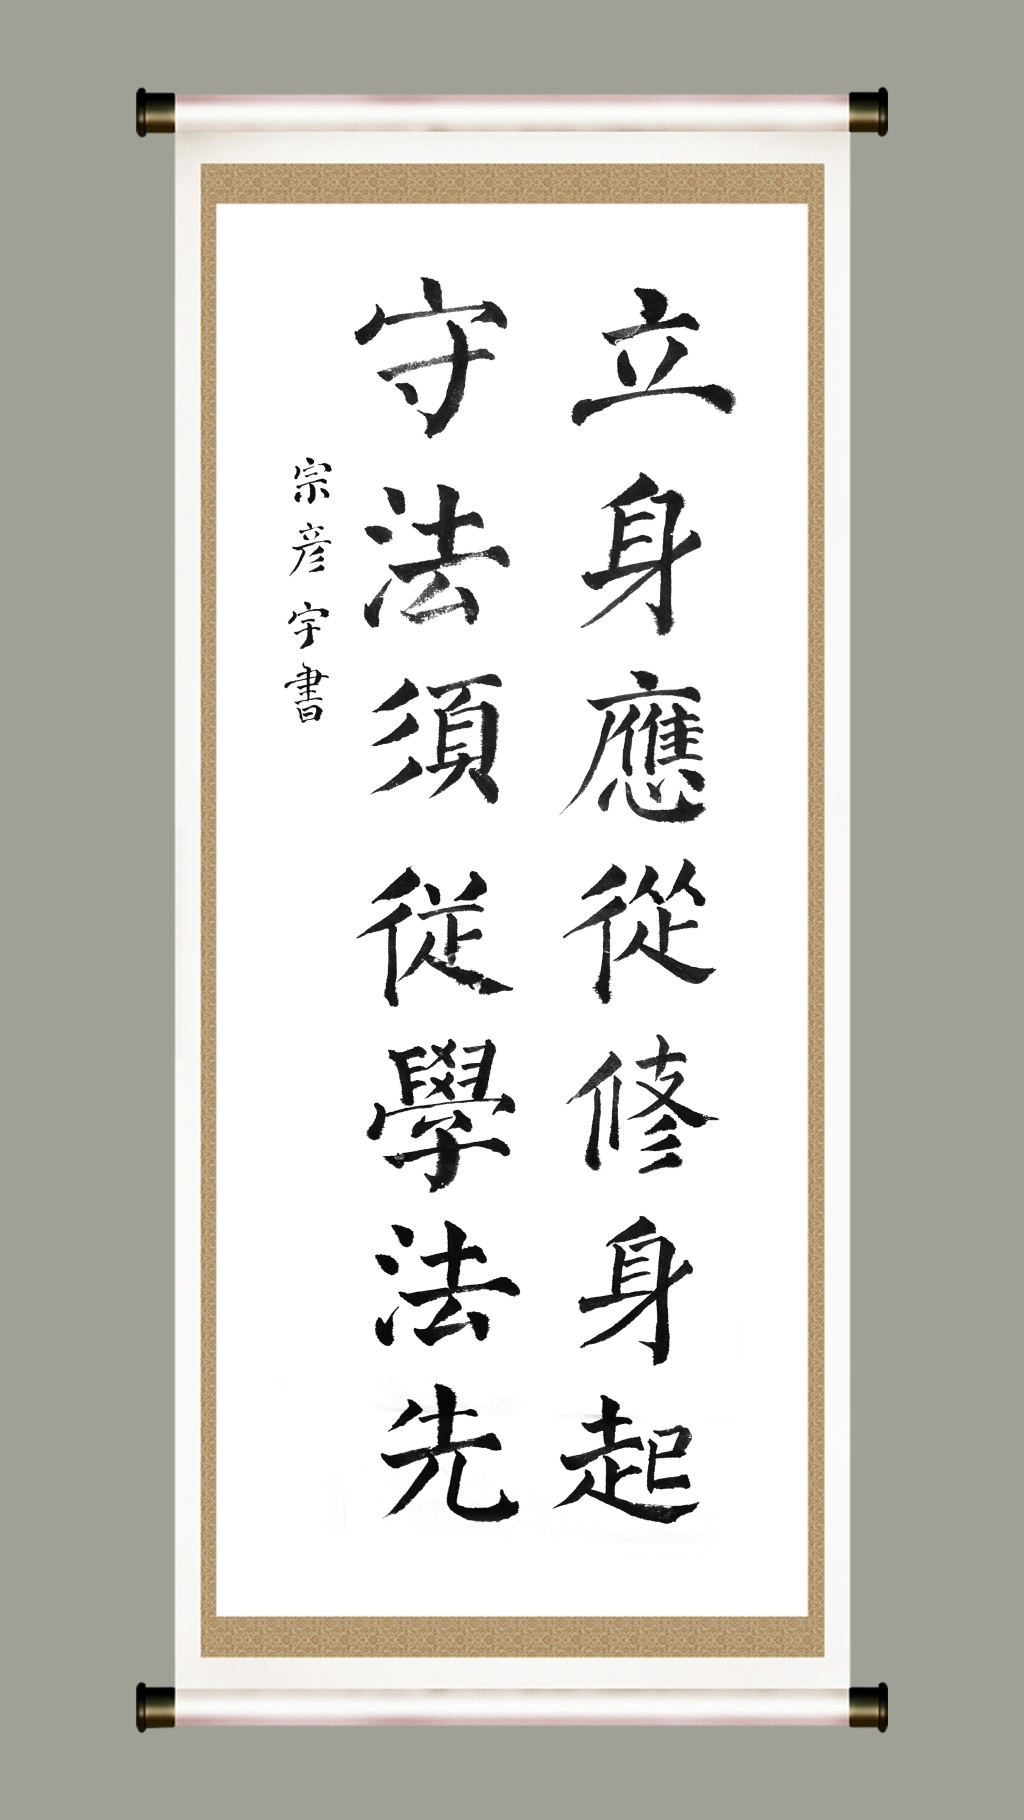 立身應從修身起
守法須従學法先
宗彦宇書